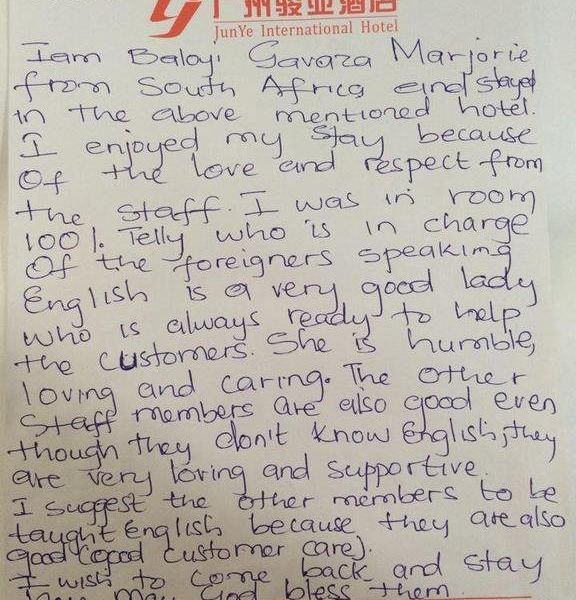 广州骏业酒店
JunYe International Hotel
I am Baloyi Gavaza Marjorie
from South Africa and stayed
in the above mentioned hotel.
I enjoyed my stay because
Of the love and respect from
the staff. I was in room
1001. Telly who is in charge
Of the foreigners speaking
English is a very good lady
who is always ready to help
the customers. She is humble,
loving and caring. The other
Staff members are also good even
though they don't know English, they
are very loving and supportive.
I suggest the other members to be
taught English because they are also
good (good customer care).
I wish to come back and stay
May God bless them